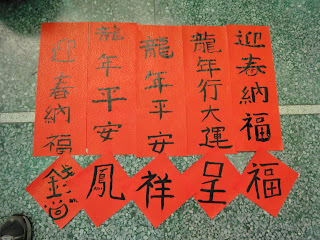 迎春納福
龍年行大運
龍年平安
龍年平安
迎春納福
福
呈
祥
鳳